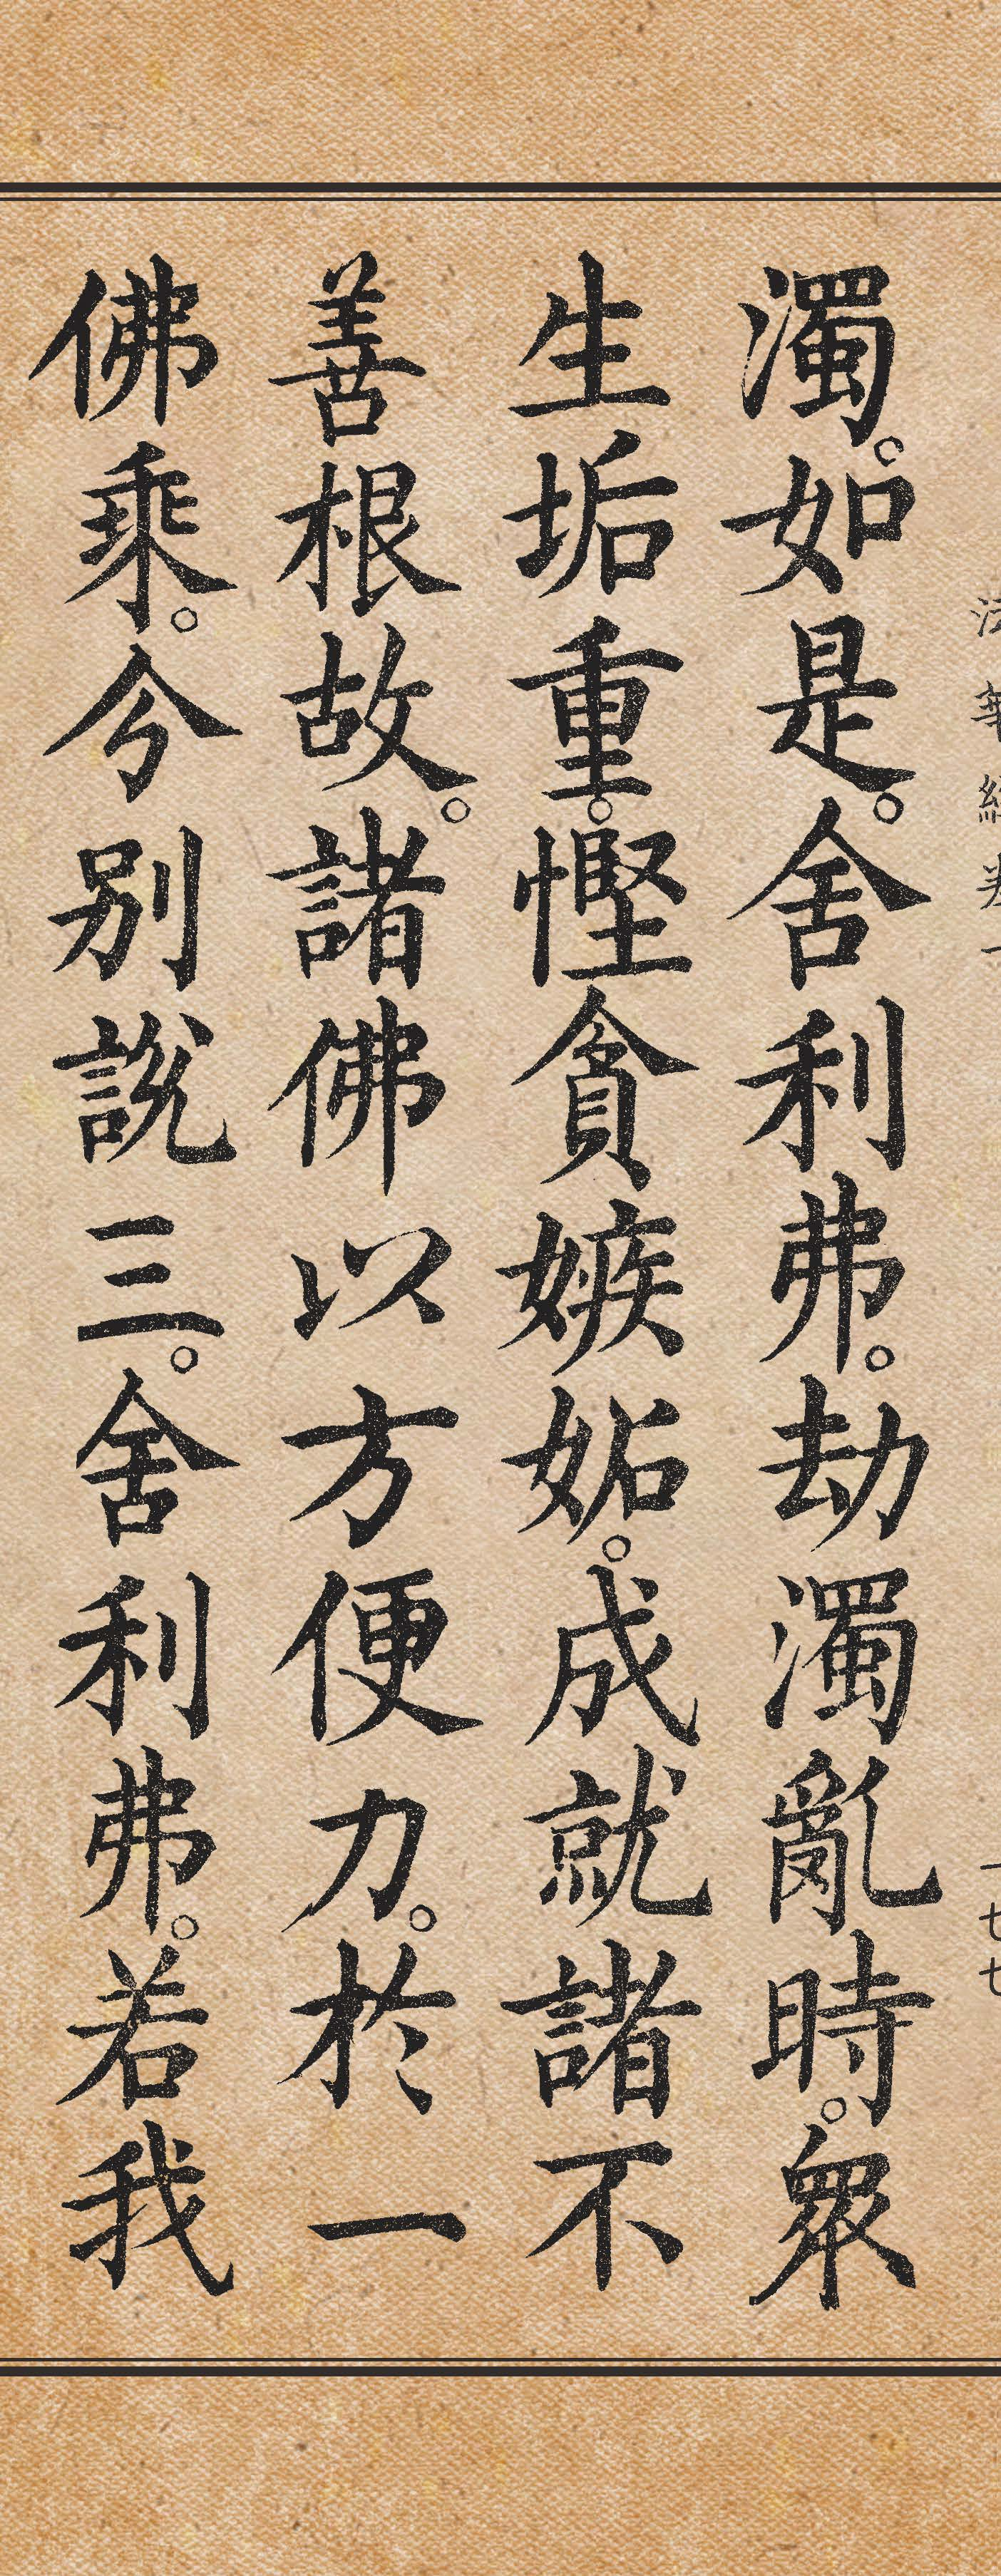 法華經卷一 一七七
濁。如是。舍利弗。劫濁亂時。眾
生垢重。慳貪嫉妬。成就諸不
善根故。諸佛以方便力。於一
佛乘。今別說三。舍利弗。若我